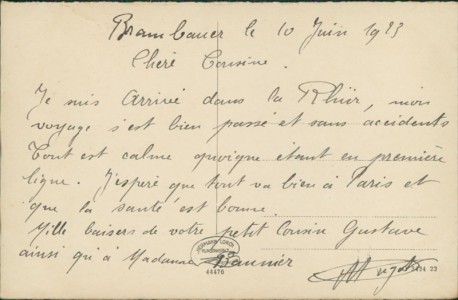 Brambauer le 10 Juin 1923
Chère Cousine.
Je suis Arrivé dans la Rhür, mon
voyage s'est bien passé et sans accidents
Tout est calme quoigne étant en première
ligne. J'espère que tout va bien à Paris et
que la santé est bonne.
Mille baisers de votre petit Cousin Gustave
ainsi qu'à Madame Baunier
44476